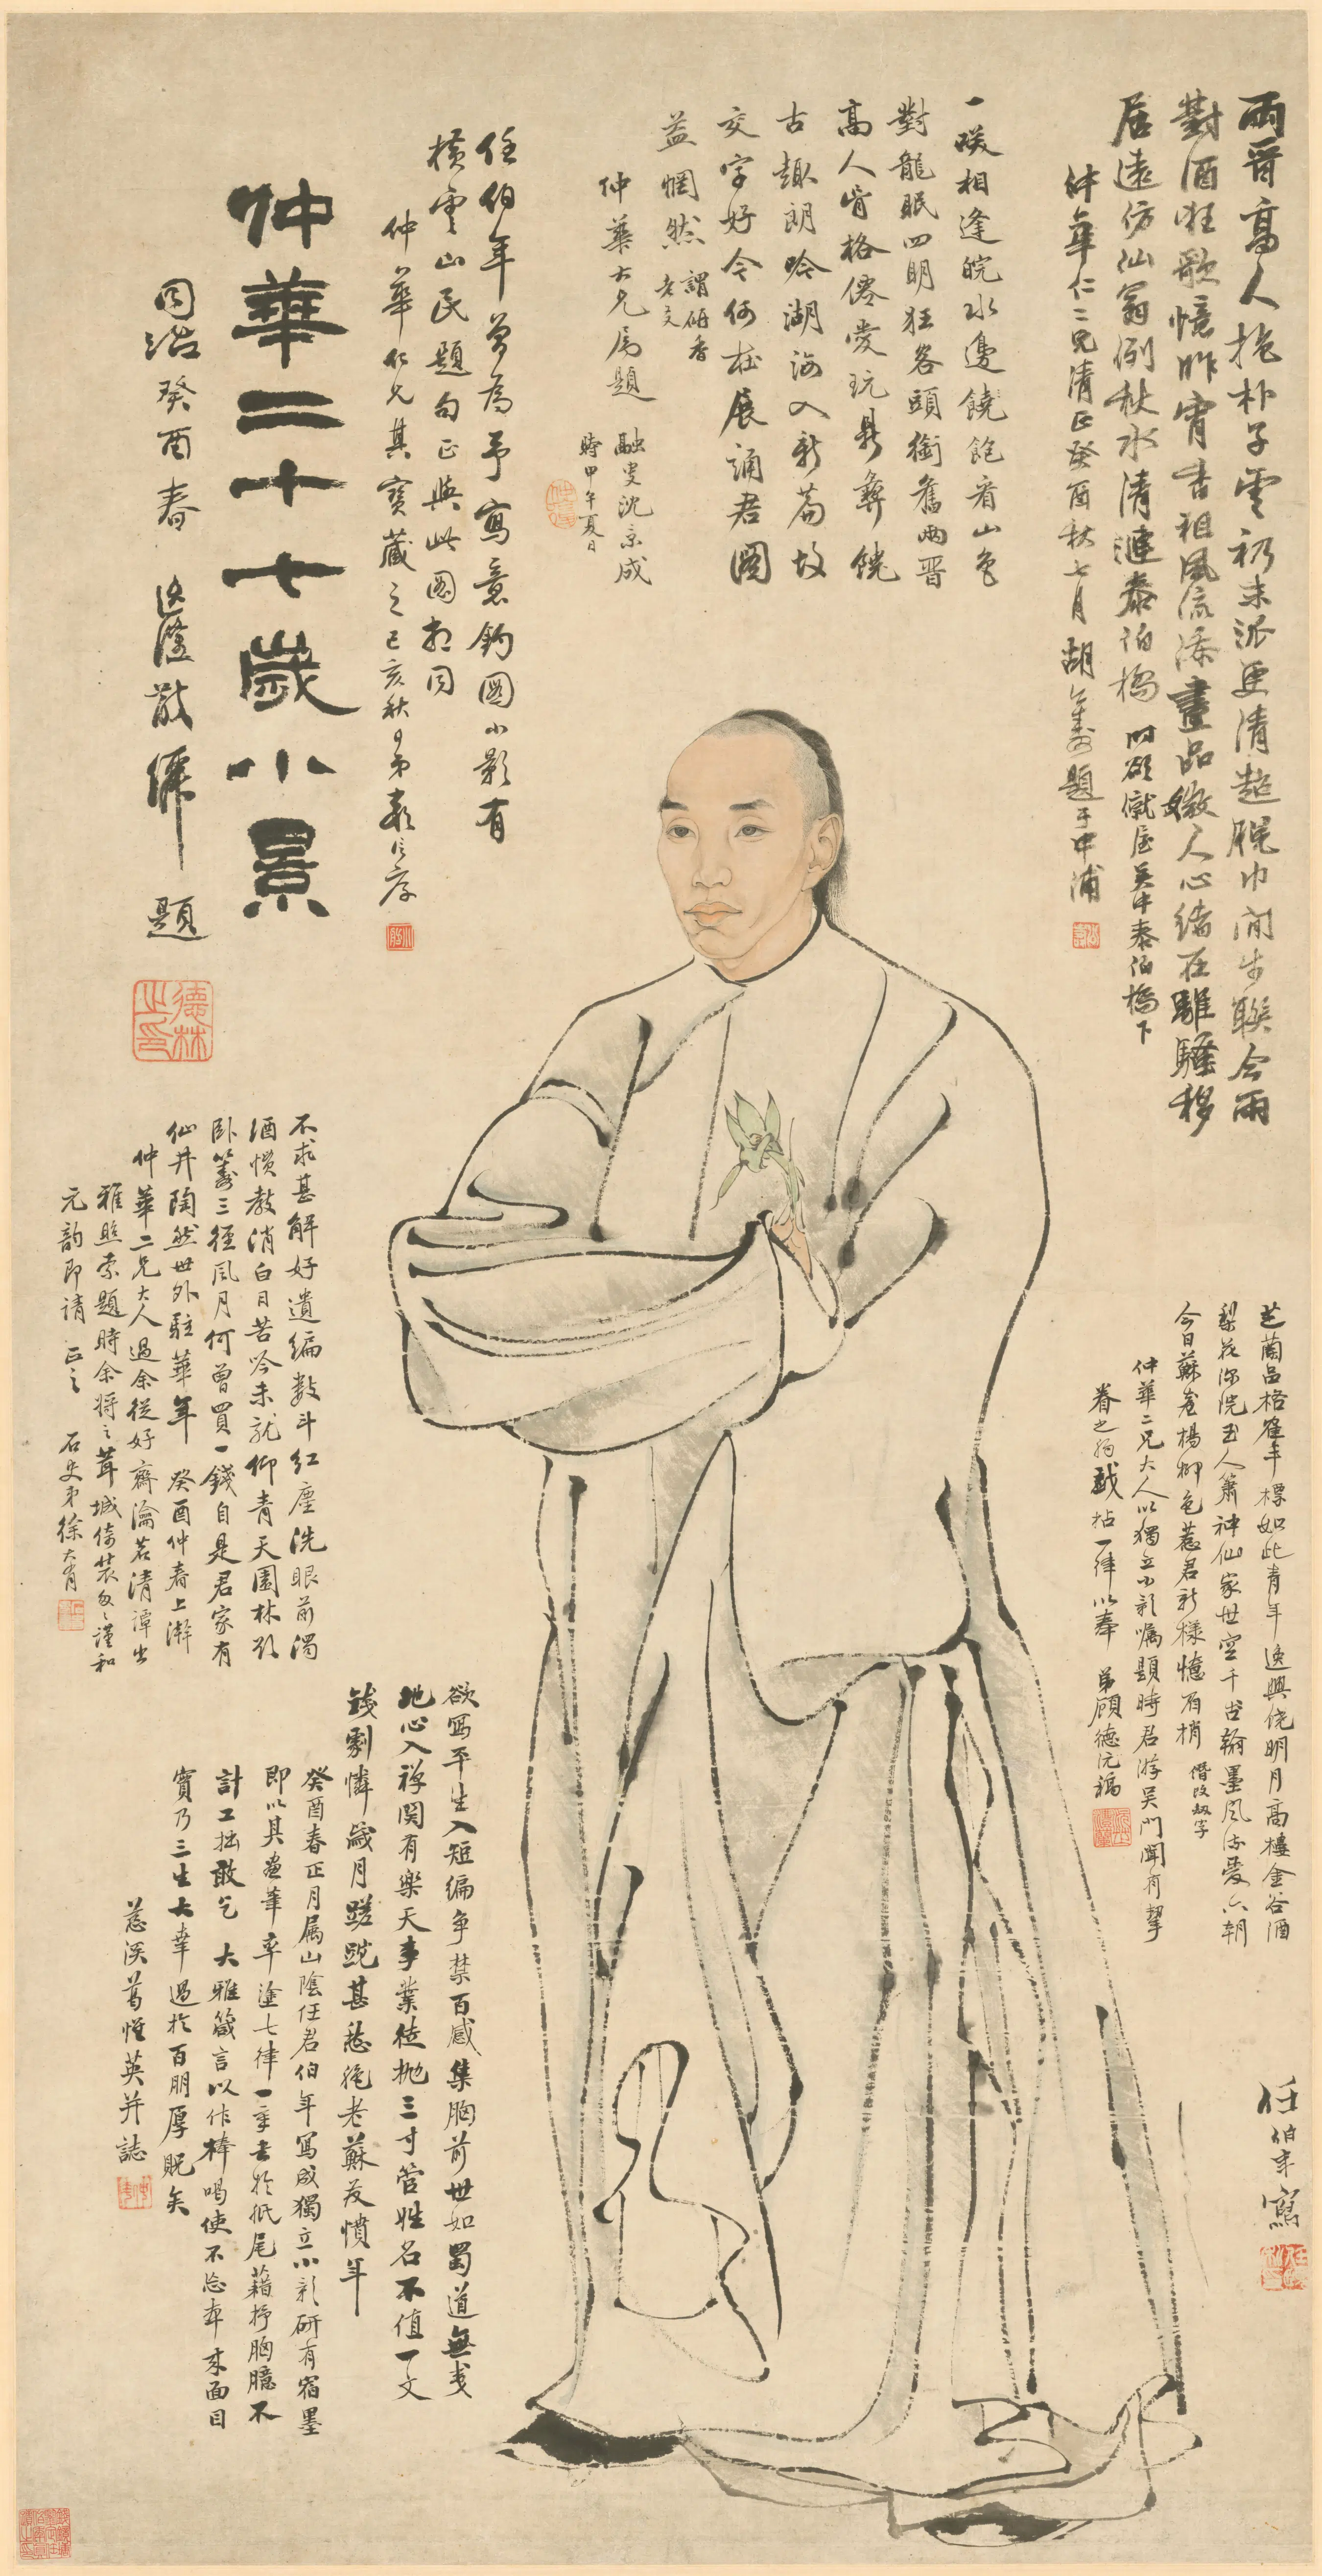 兩晉高人抱朴子雲礽末派更清超脫巾閒步聯今雨
對酒狂歌憶昨宵書祖風流添畫品徵人心緒在離騷移
居遠仿仙翁例秋水清漣泰伯橋 時欲僦屋吳中泰伯橋下
仲華仁二兄清正癸酉秋七月 胡公壽題于中浦
一笑相逢皖水邊饒飽看山色
對龍眠四明狂客頭銜舊兩晉
高人骨格僊愛玩鼎彝饒
古趣朗吟湖海入新篇故
交字好今何在展誦君圖
益惘然 謂研香老友
仲華大兄屬題 融叟沈景成
時甲午夏日
任伯年曾為予寫意釣圖小影有
橫雲山民題句正與此圖相同
仲華仁兄其寶藏之己亥秋日弟
仲華二十七歲小景
同治癸酉春 散僊題
德林之印
不求甚解好遺編數斗紅塵洗眼前濁
酒慣教消白日苦吟未就仰青天園林
臥三徑風月何曾買一錢自是君家有
仙井陶然世外駐華年 癸酉仲春上澣
仲華二兄大人過余從好齋瀹茗清譚出
雅照索題時余將之茸城倚裝匆匆謹和
元韵即請 正之 石史弟徐大有
芝蘭品格崔年標如此青年逸興饒明月高樓金谷酒
梨花深院玉人簫神仙家世空千古翰墨風流愛六朝
今日蘇臺楊柳色惹君新樣憶眉梢 僭改叔字
仲華二兄大人以獨立小影囑題時君游吳門聞有挈
眷之約戲拈一律以奉 弟顧德沅稿
欲寫平生入短編爭禁百感集胸前世如蜀道無夷
地心入禪関有樂天事業徒拋三寸管姓名不值一文
錢劇憐歲月蹉跎甚愁絶老蘇发憤年
癸酉春正月属山陰任君伯年寫成獨立小影研有宿墨
即以其畫筆率塗七律一章書於紙尾藉抒胸臆不
計工拙敢乞 大雅箴言以作棒喝使不忘本來面目
實乃三生大幸過於百朋厚貺矣
慈溪葛惟英并誌
任伯年寫